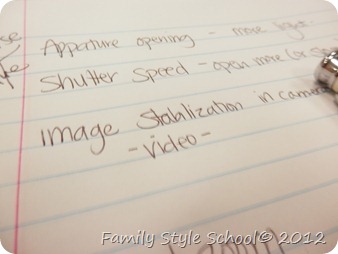 Apperture opening - more light -
Shutter Speed - open more (or
Image Stabalization in camera
- video -
Family Style School© 2012